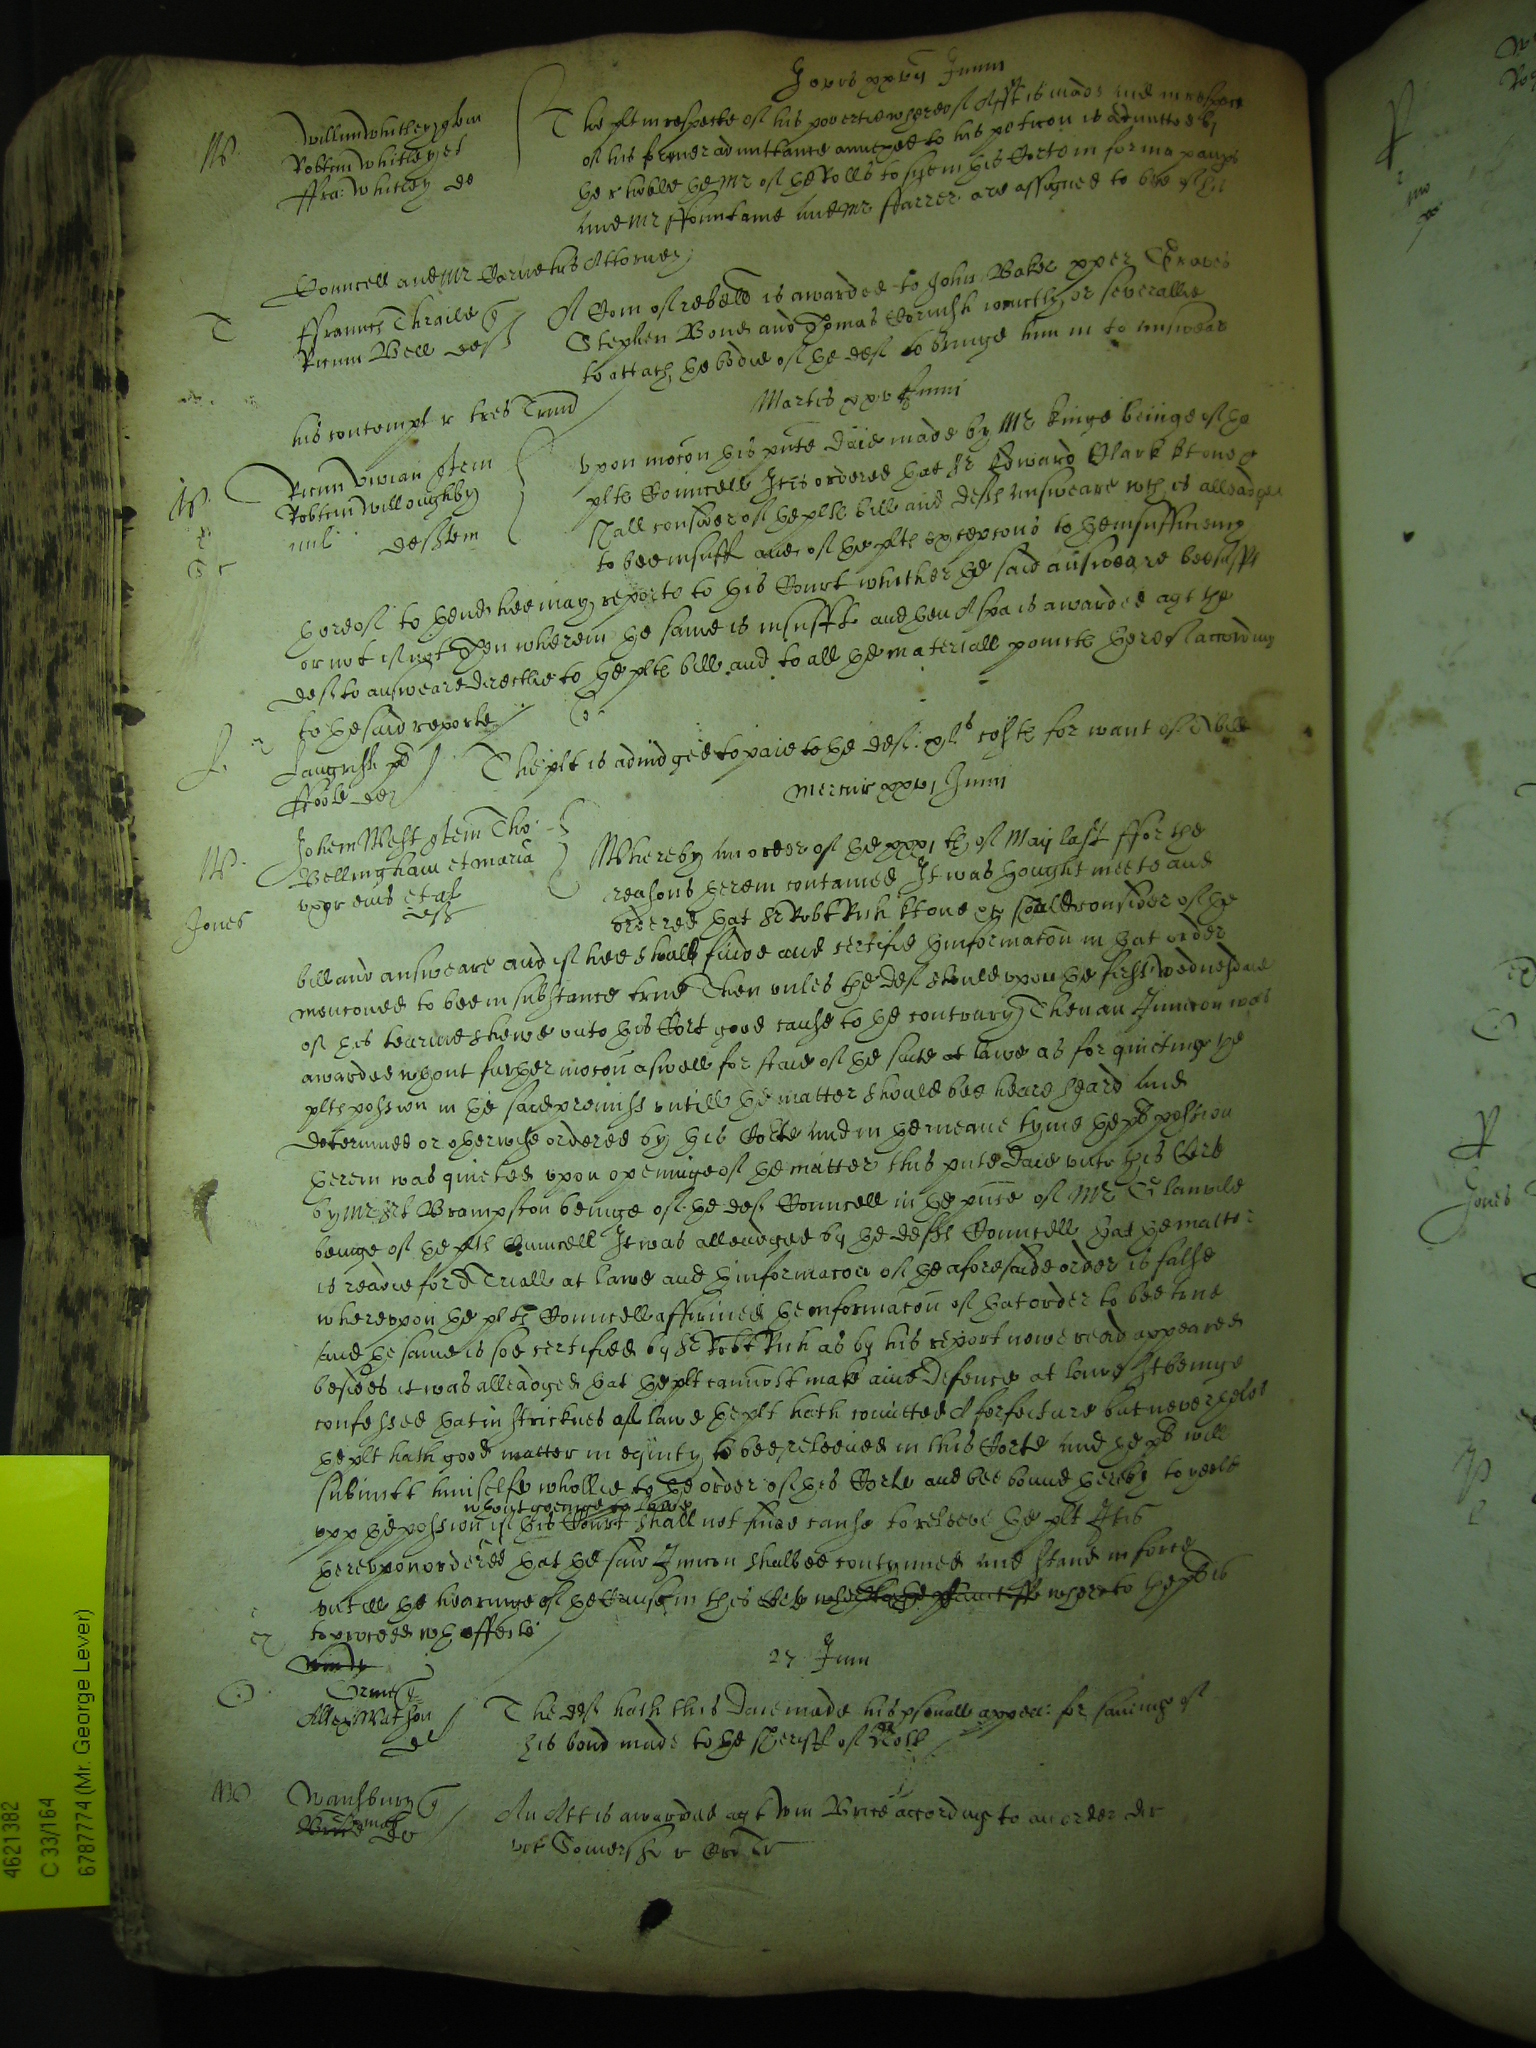 Jovis xxvij Junii
W.
Willim Whitley quer
Robtm Whitley et
ffra: Whitley de
The plt in respecte of his povertie whereof Afft is made and in respect
of his former admittance annexed to his peticon is admitted by
the r. hoble the Mr of the Rolls to sue in his Corte in forma paupis
and Mr ffountaine and Mr ffarrer are assigned to bee of his
Councell and Mr his Attorney
T
ffrauncs Thraile q
Ricum Bell deft
A Com of rebell is awarded to John Baker
Stephen Bond and Thomas Cornish ioinctly or severallie
to attach the bodie of the deft to bringe him in to answeare
his contempt r
Martis xxv Junii
W.
Ricum Vivian quer
Robtum Willoughby
mil deftem
Upon mocon this pnte daie made by Mr Kinge beinge of the
plts Councell It is ordered that Sr Edward Clark kt one &
shall consider of the plts bill and defts answeare wch is alleadged
to bee insuff and of the plts excepcons to the insufficiency
thereof to thend hee may reporte to this Court whither the said answeare bee sufft
or not if not then wherein the same is insufft and then A spa is awarded agt the
deft to answeare directlie to the plts bill and to all the materiall points thereof accordinge
to the said reporte
Langrish pl
ffoole de
The plt is adiudged to paie to the deft xls costs for want of A bill
Mercur xxvj Junii
W.
Jones
Johem West quer Tho:
Bellingham et Maria
uxor eius et al
deft
Whereby an order of the xxxj th of May last ffor the
reasons therein contained It was thought meete and
ordered that Sr Robt Rich kt one &c should consider of the
bill and answeare and if hee shall finde and certifie thinformacon in that order
mencioned to bee in substance true Then unles the deft should upon the first wednesdaie
of this tearme shewe unto this Cort good cause to the contrary Then an Iniuncon was
awarded wthout further mocon aswell for staie of the suite at lawe as for quietinge the
plts possion in the said premiss untill the matter should bee heard heard and
determined or otherwise ordered by this Corte and in the meane tyme the pl possion
therein was quieted upon openinge of the matter this pnte daie unto this Corte
by Mr Brampston beinge of the deft Councell in the pnce of Mr Glanvile
beinge of the plts Councell It was alleadged by the defts Councell that the matter
is readie for A Triall at lawe and thinformacon of the aforesaide order is false
whereupon the plts Councell affirmed the informacon of that order to bee true
and the same is soe certified by Sr Robt Rich as by his report nowe read appeared
besides it was alleadged that the plt cannott make anie defence at lawe It beinge
confessed that in strictnes of lawe the plt hath comitted A forfeiture but neverthelesse
the plt hath good matter in equity to bee releeved in this Corte and the pl will
submitt himselfe whollie to the order of this Corte and bee bound thereby to yeeld
wthout goeinge to lawe
upp the possion if this Court shall not finde cause to releeve the plt It is
thereupon ordered that the said Iniuncon shalbee contynued and stand in force
untill the hearinge of the Cause in this Corte whereto the plaintiffe whereto the pl is
to proceed wth effecte
27 Junii
Grim q
Allex Watson
de
The deft hath this daie made his psonall appear: for savinge of
his bond made to the Sheriff of
W
Wansburg q
Brice
de
An Att is awarded agt Wm Brice accordinge to an order
vic Somerst r
4621382
C 33/164
6787774 (Mr. George Lever)
Jones